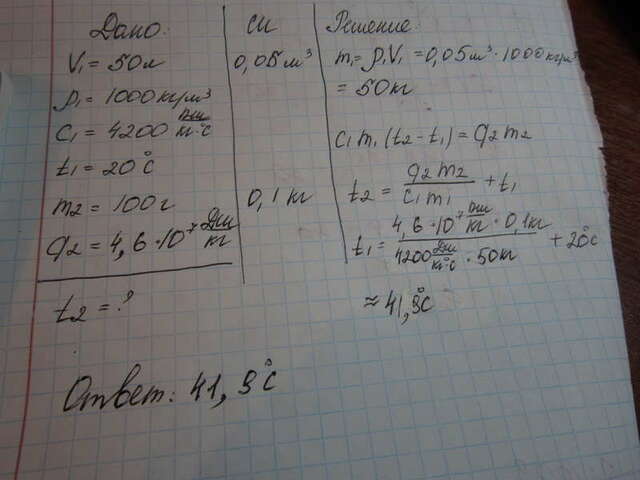 Дано:
V₁ = 50л
ρ₁ = 1000кг/м³
c₁ = 4200 Дж/кг·°С
t₁ = 20°С
m₂ = 100г
q₂ = 4,6·10⁷ Дж/кг
t₂ = ?
СИ
0,05м³
0,1кг
Решение:
m₁ = ρ₁V₁ = 0,05м³·1000кг/м³
= 50кг
c₁m₁(t₂-t₁) = q₂m₂
t₂ = q₂m₂/c₁m₁ + t₁
t₁ = 4,6·10⁷ Дж/кг · 0,1кг / 4200 Дж/кг·°С · 50кг + 20°С
≈ 41,9°С
Ответ: 41,9°С